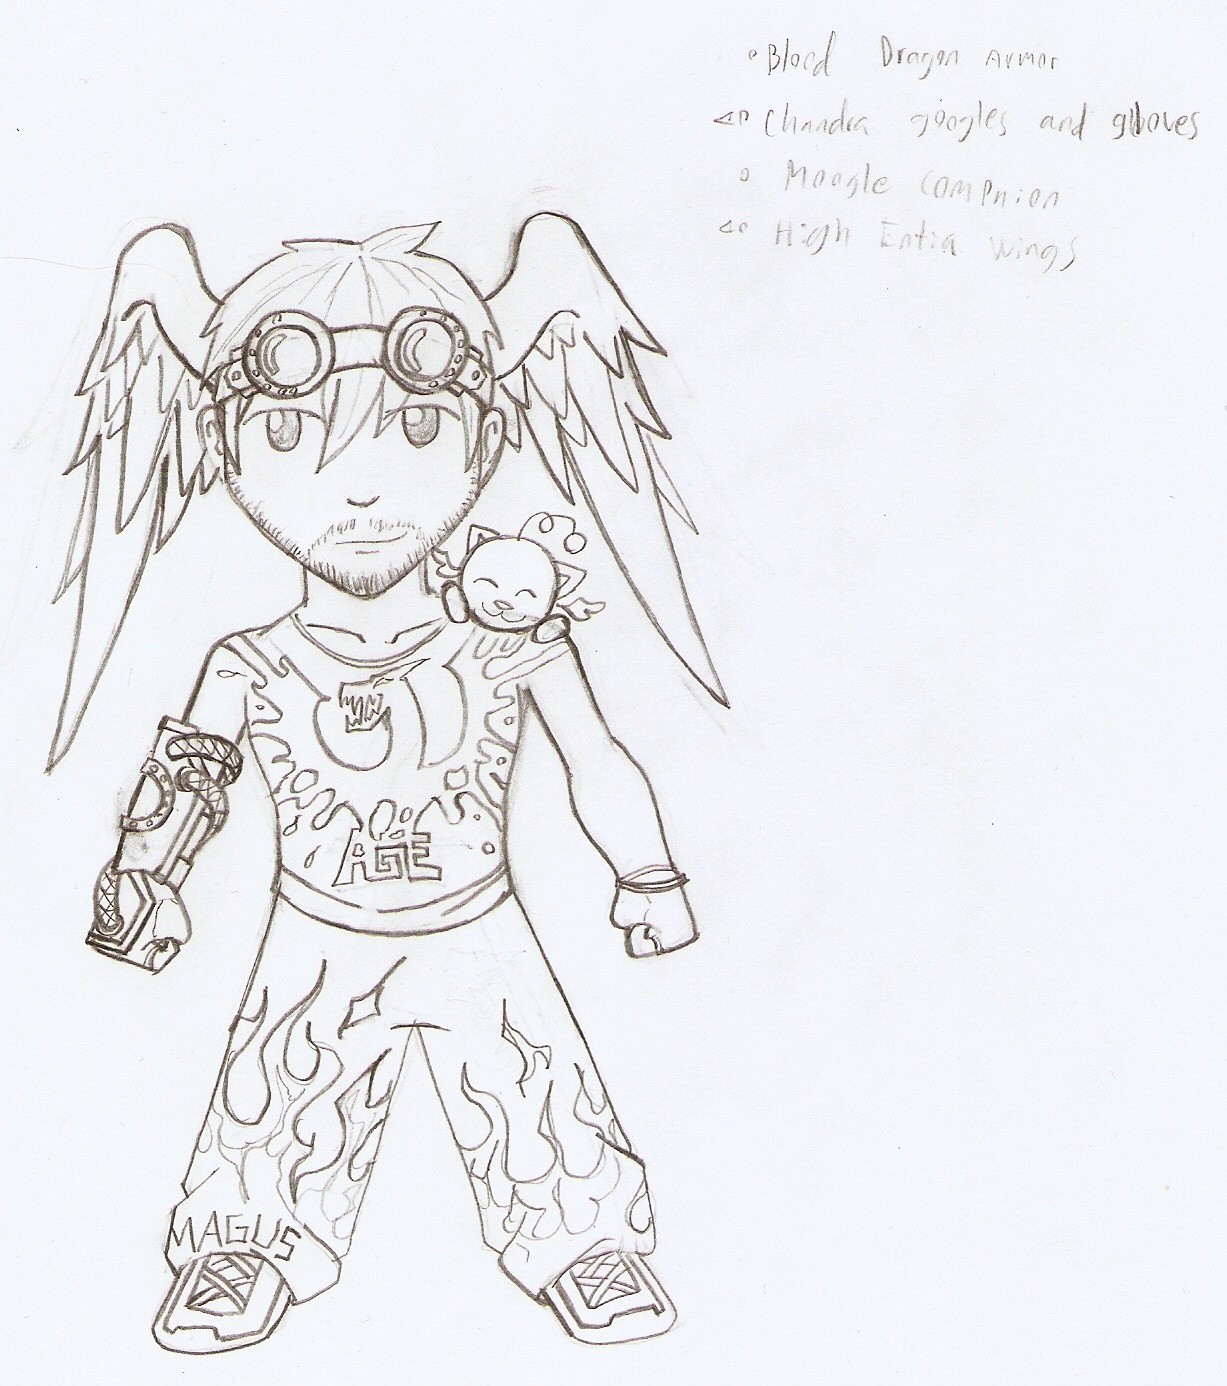 Blood Dragon Armor
Chandra googles and gloves
Moogle Compnion
High Entia Wings
AGE
MAGUS